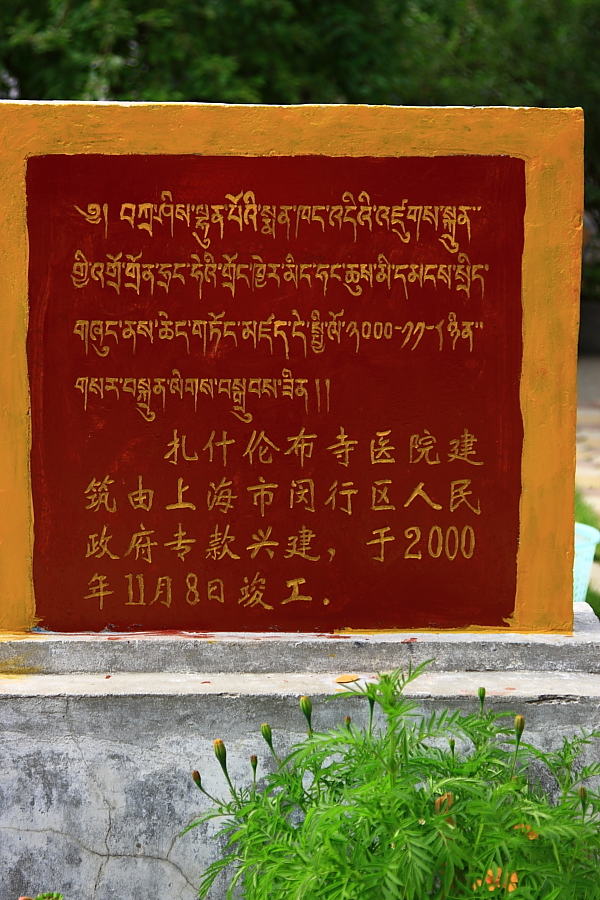 ༄༅། བཀྲ་ཤིས་ལྷུན་པོའི་སྨན་ཁང་འདིའི་འཛུགས་སྐྲུན་
གྲོང་ཁྱེར་མིང་ཧང་ཆུས་མི་དམངས་སྲིད་
གཞུང་ནས་ཆེད་གཏོང་མཛད་དེ་སྤྱི་ལོ་༢༠༠༠-༡༡-༨ཉིན་
གསར་བསྐྲུན་ལེགས་བསྒྲུབས་ཟིན།།
扎什伦布寺医院建
筑由上海市闵行区人民
政府专款兴建，于2000
年11月8日竣工.